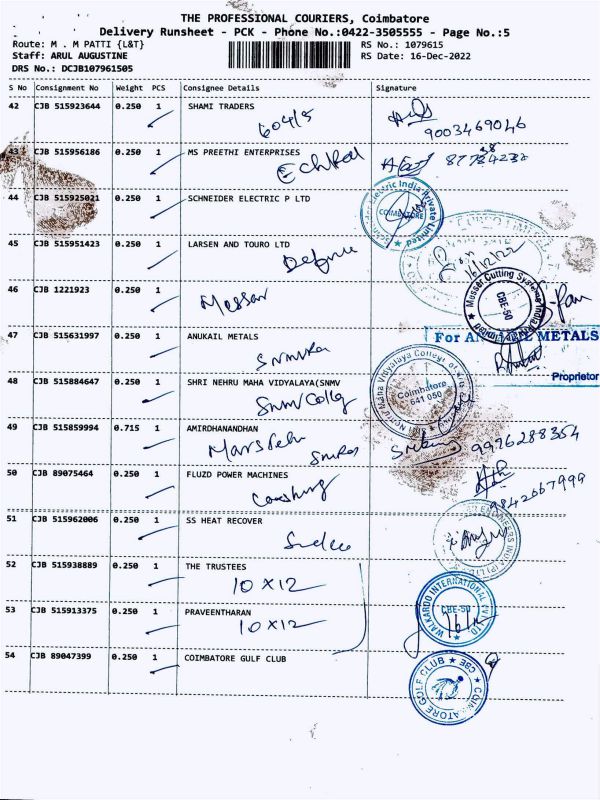 THE PROFESSIONAL COURIERS, Coimbatore
Delivery Runsheet - PCK - Phone No.:0422-3505555 - Page No.:5
Route: M . M PATTI {L&T} RS No.: 1079615
Staff: ARUL AUGUSTINE RS Date: 16-Dec-2022
DRS No.: DCJB107961505
S No Consignment No Weight PCS Consignee Details Signature
42 CJB 515923644 0.250 1 SHAMI TRADERS
604/5
9003469046
43 CJB 515956186 0.250 1 MS PREETHI ENTERPRISES
44 CJB 515925021 0.250 1 SCHNEIDER ELECTRIC P LTD
COIMBATORE
45 CJB 515951423 0.250 1 LARSEN AND TOURO LTD
16/12/22
46 CJB 1221923 0.250 1
Messar
Messar Cutting Systems India
CBE-50
47 CJB 515631997 0.250 1 ANUKAIL METALS
For METALS
Proprietor
48 CJB 515884647 0.250 1 SHRI NEHRU MAHA VIDYALAYA(SNMV
Nehru Maha Vidyalaya College of Arts
Coimbatore
641 050
49 CJB 515859994 0.715 1 AMIRDHANANDHAN
9976288354
50 CJB 89075464 0.250 1 FLUZD POWER MACHINES
9842667999
51 CJB 515962006 0.250 1 SS HEAT RECOVER
ENGINEERS INDIA (P) LTD
52 CJB 515938889 0.250 1 THE TRUSTEES
10 X 12
53 CJB 515913375 0.250 1 PRAVEENTHARAN
10 X 12
WALKARDO INTERNATIONAL (P) LTD
CBE-50
54 CJB 89047399 0.250 1 COIMBATORE GULF CLUB
COIMBATORE GOLF CLUB CBE